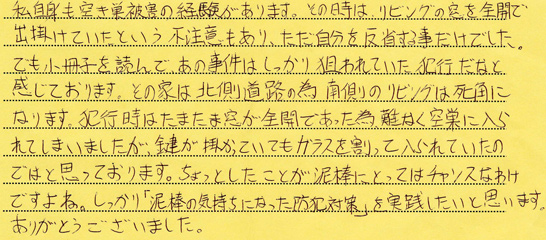 私自身も空き巣被害の経験があります。その時は、リビングの窓を全開で
出掛けていたという不注意もあり、ただ自分を反省する事だけでした。
でも小冊子を読んで、あの事件はしっかり狙われていた犯行だなと
感じております。その家は北側道路の為、南側のリビングは死角に
なります。犯行時はたまたま窓が全開であった為難なく空巣に入ら
れてしまいましたが、鍵が掛かっていてもガラスを割って入られていたの
ではと思っております。ちょっとしたことが泥棒にとってはチャンスなわけ
ですよね。しっかり「泥棒の気持ちになった防犯対策」を実践したいと思います。
ありがとうございました。